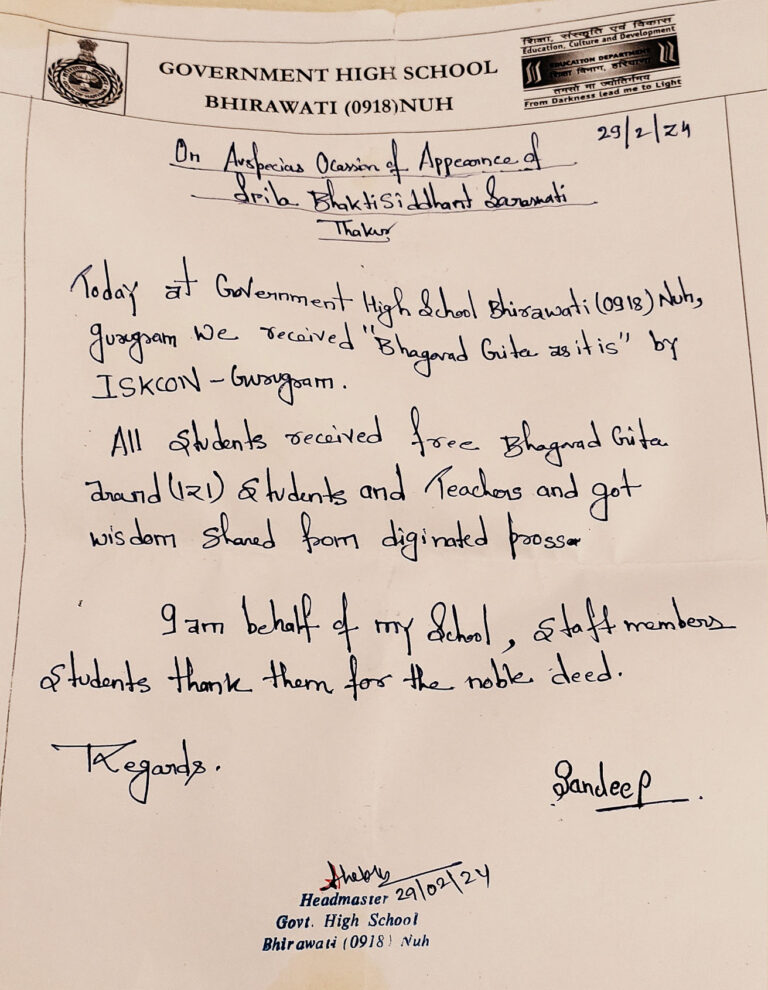 शिक्षा, संस्कृति एवं विकास
Education, Culture and Development
EDUCATION DEPARTMENT
शिक्षा विभाग, हरियाणा
तमसो मा ज्योतिर्गमय
From Darkness lead me to Light
GOVERNMENT HIGH SCHOOL
BHIRAWATI (0918)NUH
29/2/24
On Auspecias Ocassion of Appearance of
Srila BhaktiSiddhant Saraswati
Thakur
Today at Government High School Bhirawati (0918) Nuh,
gurugram We received "Bhagavad Gita as it is" by
ISKCON - Gurugram.
All Students received free Bhagavad Gita
around (121) Students and Teachers and got
wisdom shared from diginated
I am behalf of my School, Staff members
Students thank them for the noble deed.
Regards.
Sandeep
29/02/24
Headmaster
Govt. High School
Bhirawati (0918) Nuh